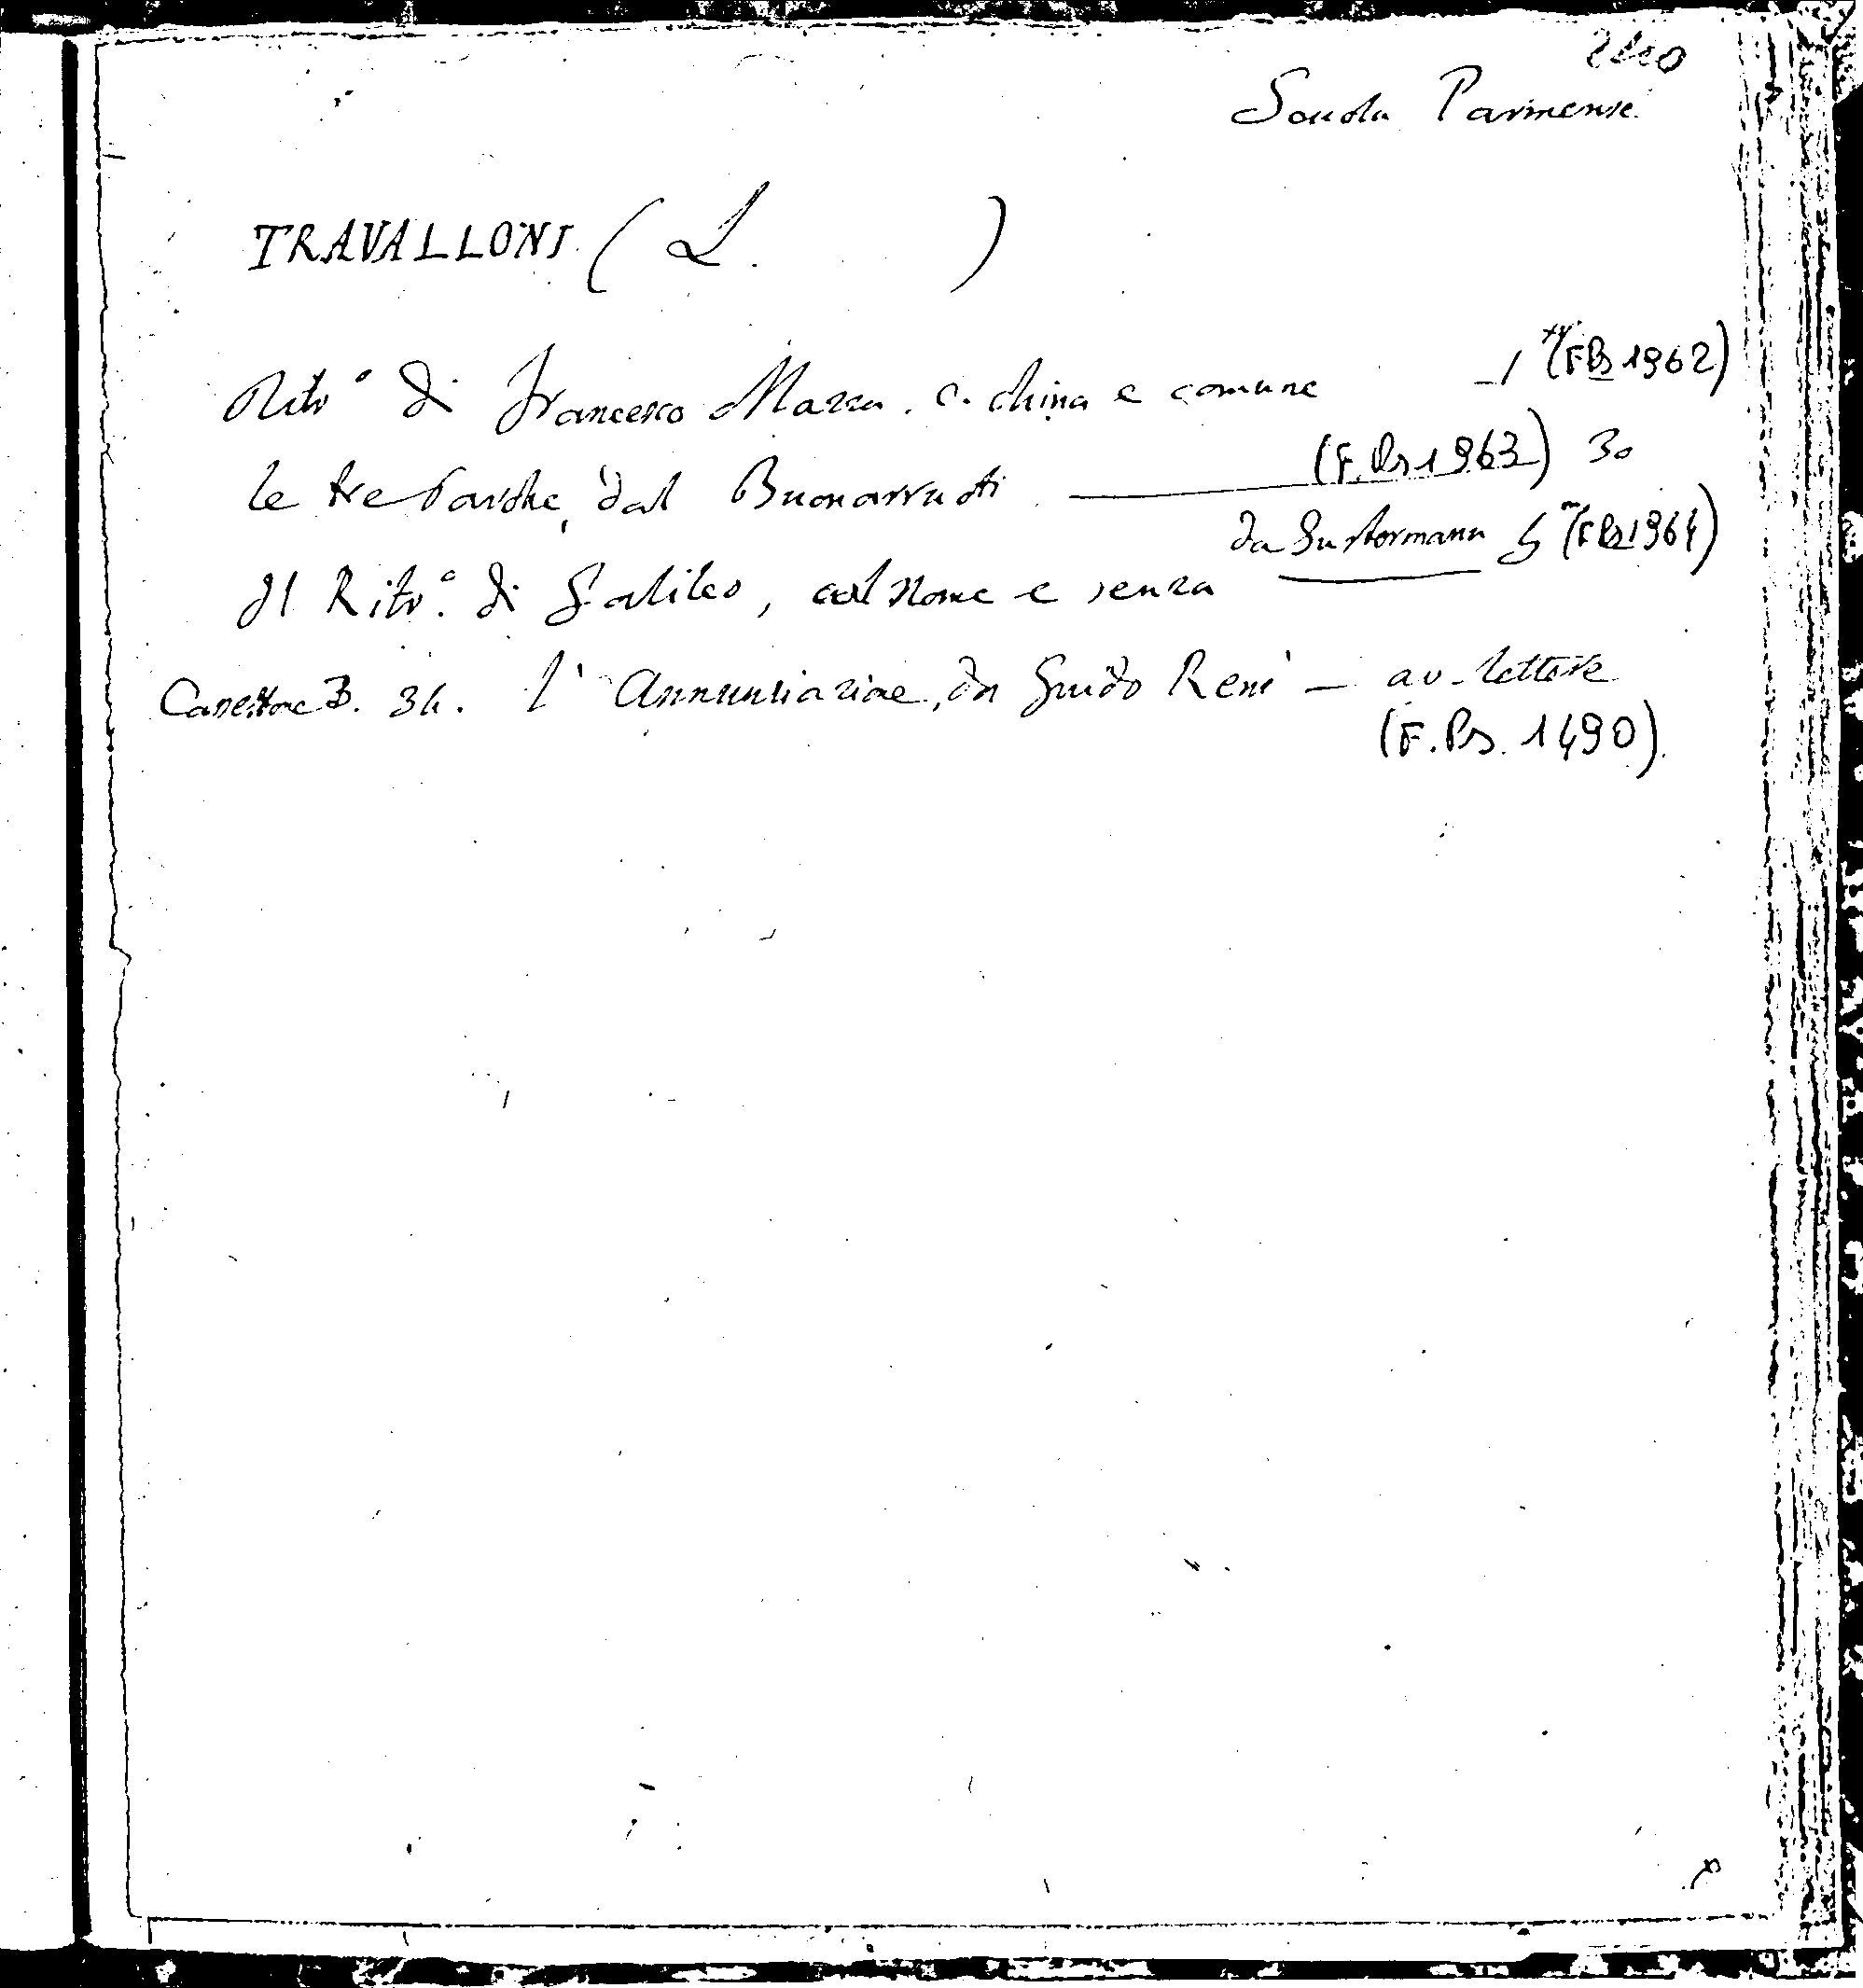 Scuola Parmense
TRAVALLONI (L. )
Ritr° di Francesco Mazza. c. china e comune - 1 (F Ps 1962)
le tre Parche, dal Buonarruoti (F. Ps 1963) 30
Il Ritr.° di Galileo, col nome e senza da Sustermann 5 (F Ps 1964)
B. 34. l'Annunziazione, da Guido Reni - av. lettere
(F. Ps. 1490).